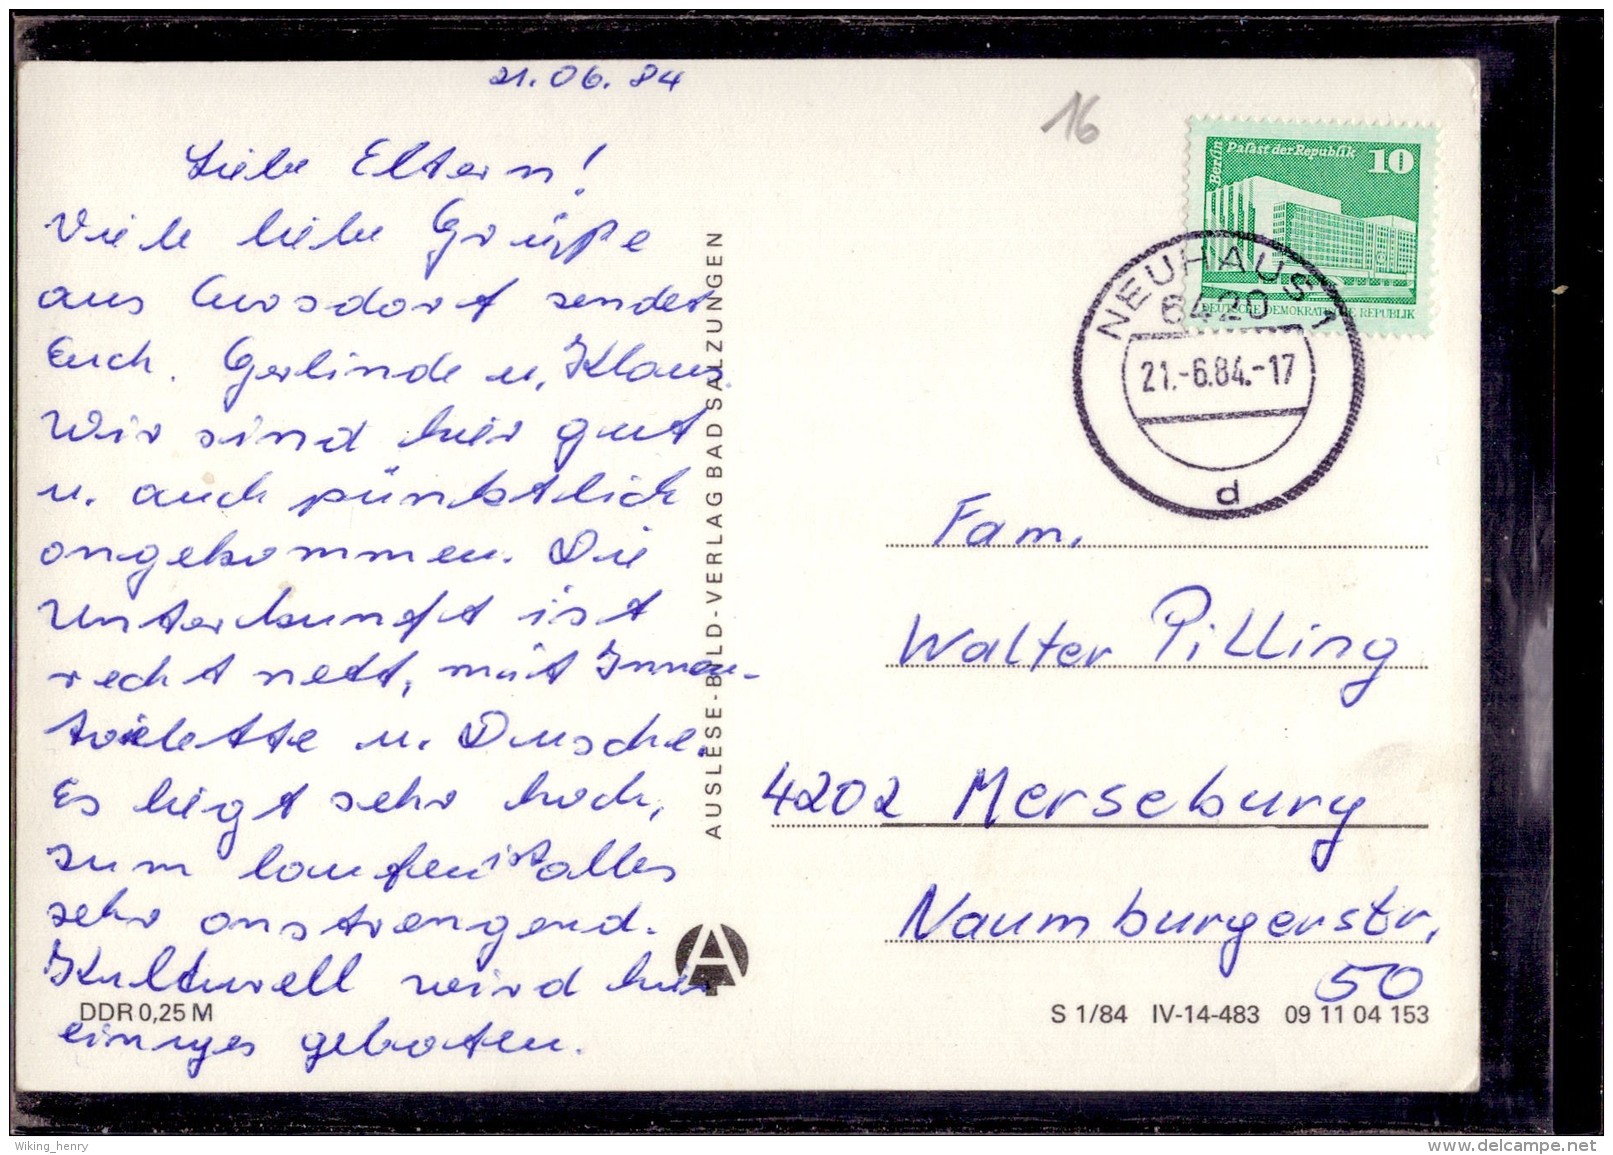 21.06.84
Liebe Eltern!
Viele liebe Grüße
aus sendet
Euch. Gerlinde u. Klaus.
Wir sind hier gut
u. auch pünktlich
angekommen. Die
Unterkunft ist
recht nett, mit Innen-
toilette u. Dusche.
Es liegt sehr hoch,
zum laufen ist alles
sehr anstrengend.
Kulturell wird hier
einiges geboten.
DDR 0,25 M
AUSLESE-BILD-VERLAG BAD SALZUNGEN
A
16
Berlin
Palast der Republik 10
DEUTSCHE DEMOKRATISCHE REPUBLIK
NEUHAUS 1
6420
21.-6.84.-17
d
Fam.
Walter Pilling
4202 Merseburg
Naumburgerstr.
50
S 1/84 IV-14-483 09 11 04 153
Wiking_henry
www.delcampe.net